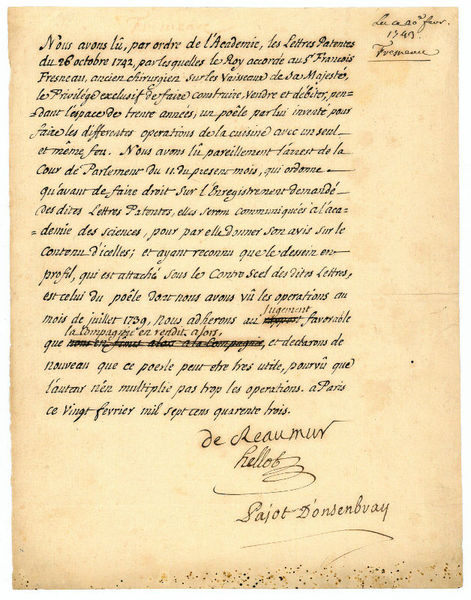 Lu ce 20e fevr.
1743
Fresneau
Nous avons lû, par ordre de l'Academie, les Lettres Patentes
du 26 octobre 1742, par lesquelles le Roy accorde au Sr. François
Fresneau, ancien chirurgien sur les Vaisseaux de sa Majeste,
le Privilege exclusif de faire construire, vendre et débiter, pen-
dant l'espace de trente années, un poêle par lui inventé pour
faire les differentes operations de la cuisine avec un seul
et même feu. Nous avons lû pareillement l'arrest de la
Cour de Parlement du 11 du present mois, qui ordonne
qu'avant de faire droit sur l'Enregistrement demandé
des dites Lettres Patentes, elles seront communiquées a l'aca-
demie des sciences, pour par elle donner son avis sur le
Contenu d'icelles; et ayant reconnu que le dessein en
profil, qui est attaché sous le Contrescel des dites Lettres,
est celui du poêle dont nous avons vû les operations au
mois de juillet 1739, Nous adherons au rapport jugement favorable
que la Compagnie en rendit alors, et declarons de
nouveau que ce poesle peut être tres utile, pourvû que
l'auteur n'en multiplie pas trop les operations. a Paris
ce Vingt février mil sept cens quarente trois.
de Reaumur
hellot
Pajot D'onsenbray